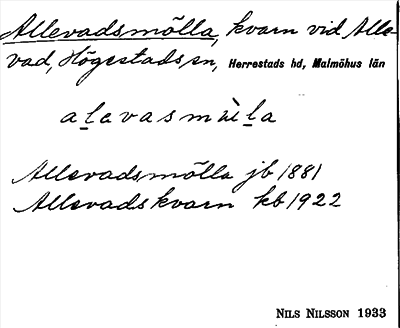 Allevadsmölla, kvarn vid Alle-
vad, Högestads sn, Herrestads hd, Malmöhus län
Allevadsmölla jb 1881
Allevads kvarn kb 1922
NILS NILSSON 1933